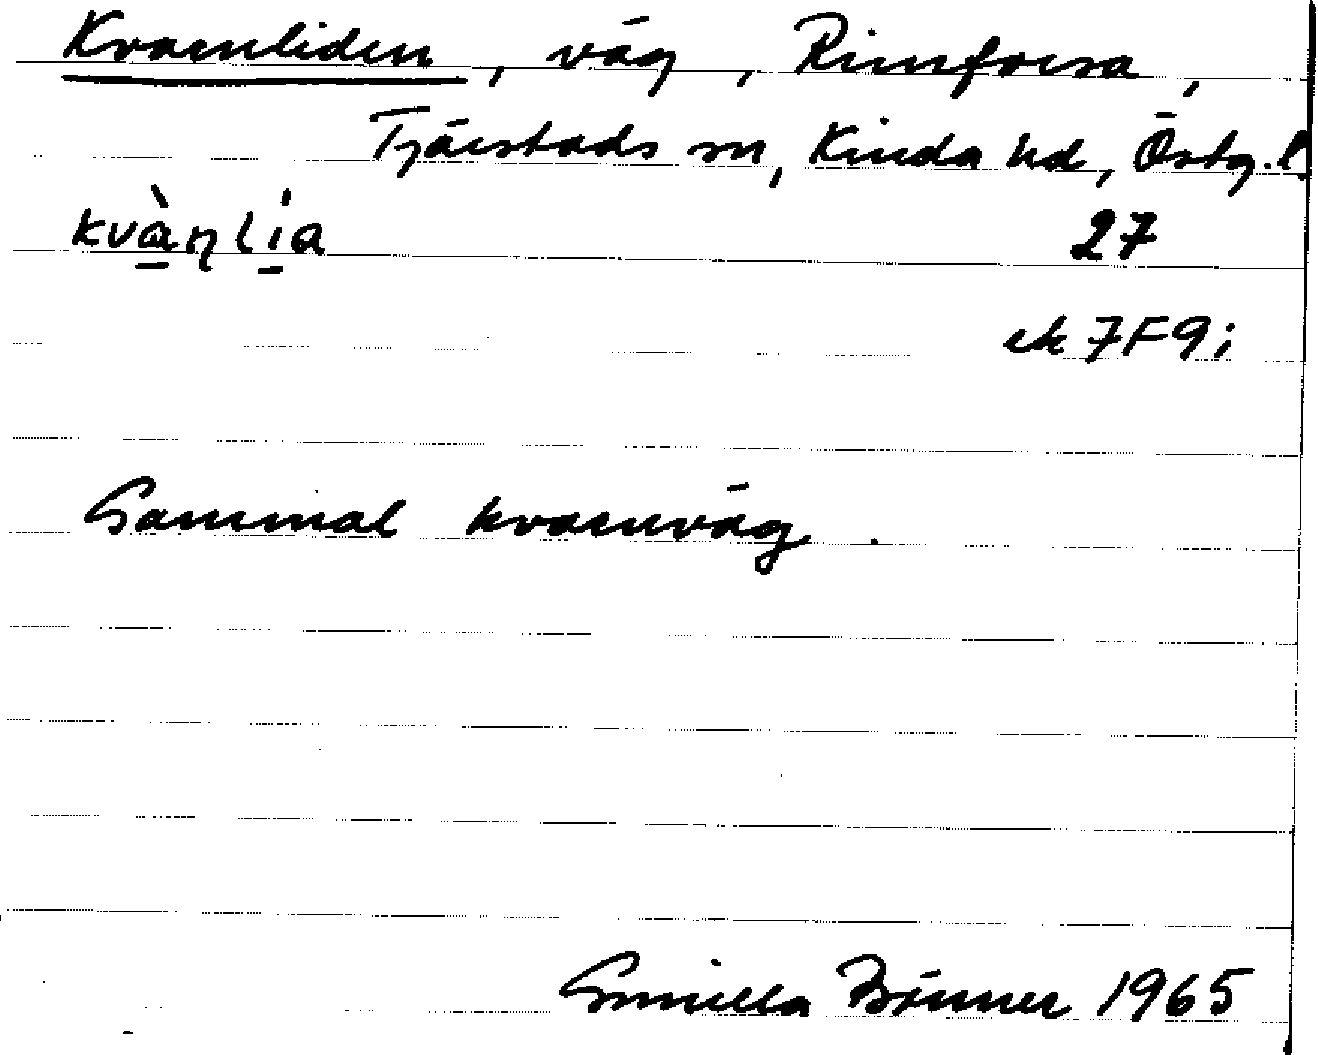 Kvarnliden, väg, Rimforsa,
Tjärstads sn, Kinda hd, Östg. l
kvàn̥li̇a
27
ek 7F9i
Gammal kvarnväg.
Gunilla Brönner 1965